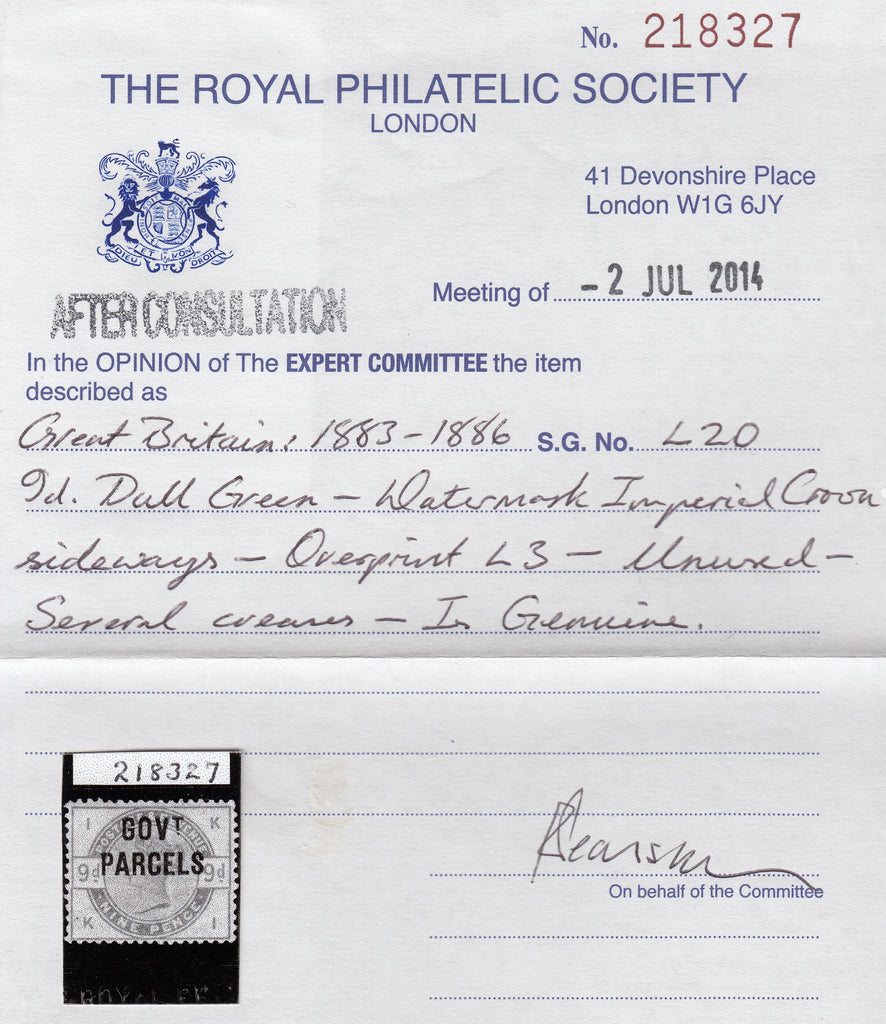 No. 218327
THE ROYAL PHILATELIC SOCIETY
LONDON
41 Devonshire Place
London W1G 6JY
DIEU ET MON DROIT
Meeting of - 2 JUL 2014
AFTER CONSULTATION
In the OPINION of The EXPERT COMMITTEE the item
described as
Great Britain: 1883-1886 S.G. No. L20
9d. Dull Green - Watermark Imperial Crown
sideways - Overprint L3 - Unused -
Several creases - Is Genuine.
218327
I K
GOVT
PARCELS
9d 9d
NINE PENCE
K I
On behalf of the Committee